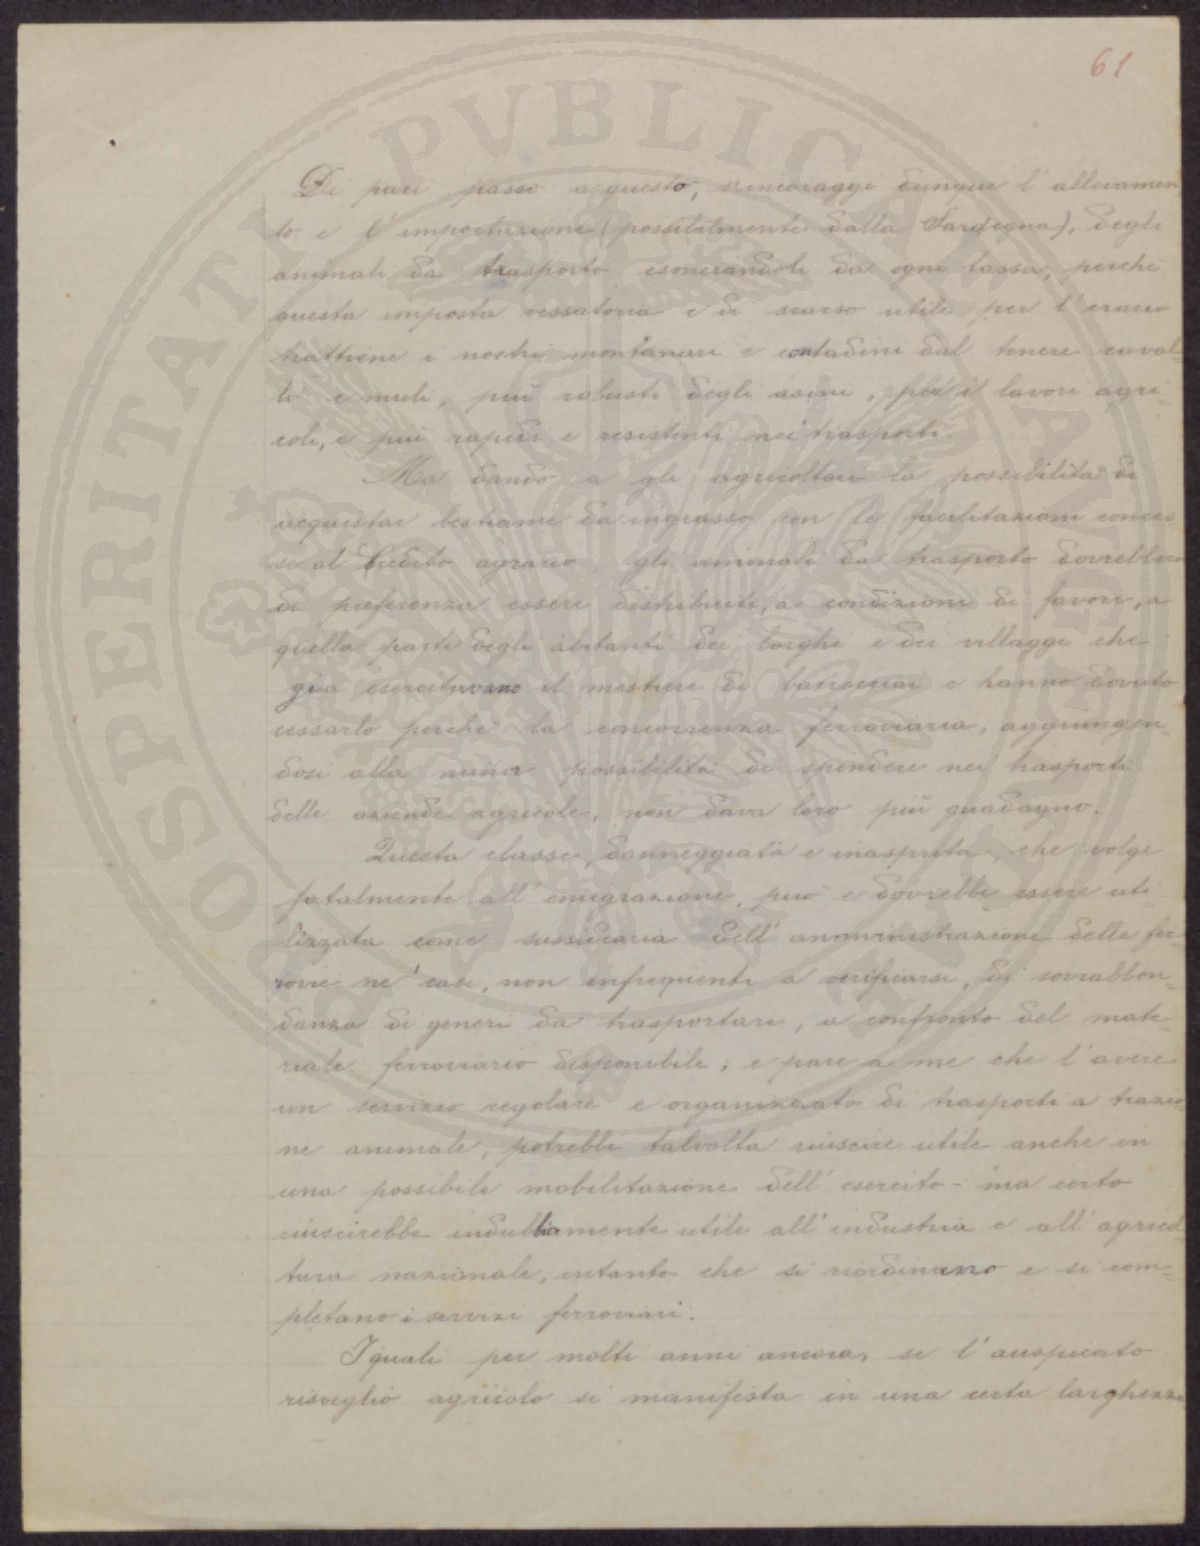 61
Di pari passo a questo, s'incoraggi dunque l'allevamen
to e l'importazione (possibilmente dalla Sardegna), degli
animali da trasporto esonerandoli da ogni tassa, perchè
questa imposta vessatoria e di scarso utile per l'erario
trattiene i nostri montanari e contadini dal tenere caval=
li e muli, più robusti degli asini, per i lavori agri=
coli, e più rapidi e resistenti nei trasporti.
Ma dando a gli agricoltori la possibilità di
acquistar bestiame da ingrasso con le facilitazioni conces
se al Credito agrario, gli animali da trasporto dovrebbero
di preferenza essere distribuiti, a condizioni di favore, a
quella parte degli abitanti dei borghi e dei villaggi che
già esercitavano il mestiere di barrocciai e hanno dovuto
cessarlo perchè la concorrenza ferroviaria, aggiungen=
dosi alla minor possibilità di spendere nei trasporti
delle aziende agricole, non dava loro più guadagno.
Questa classe, danneggiata e inasprita, che volge
fatalmente all'emigrazione, può e dovrebbe essere uti
lizzata come sussidiaria dell'amministrazione delle fer=
rovie ne' casi, non infrequenti a verificarsi, di sovrabbon=
danza di generi da trasportare, a confronto del mate=
riale ferroviario disponibile; e pare a me che l'avere
un servizio regolare e organizzato di trasporti a trazio=
ne animale, potrebbe talvolta riuscire utile anche in
una possibile mobilitazione dell'esercito - ma certo
riuscirebbe indubbiamente utile all'industria e all'agricol=
tura nazionale, intanto che si riordinano e si com=
pletano i servizi ferroviari.
I quali per molti anni ancora, se l'auspicato
risveglio agricolo si manifesta in una certa larghezza
PROSPERITATI PVBLICAE